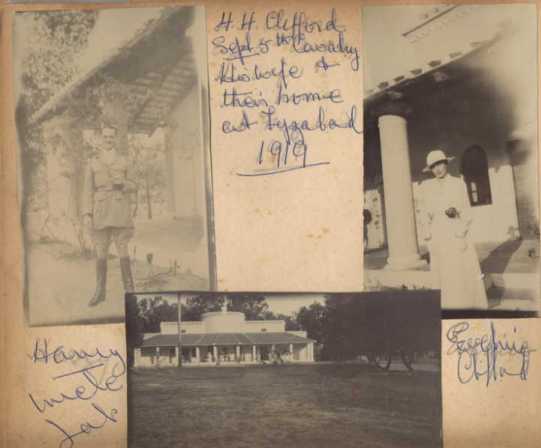 H. H. Clifford
Sept. 5th Cavalry
His wife &
their home
at Fyzabad
1919
Harry
Uncle
Clifford